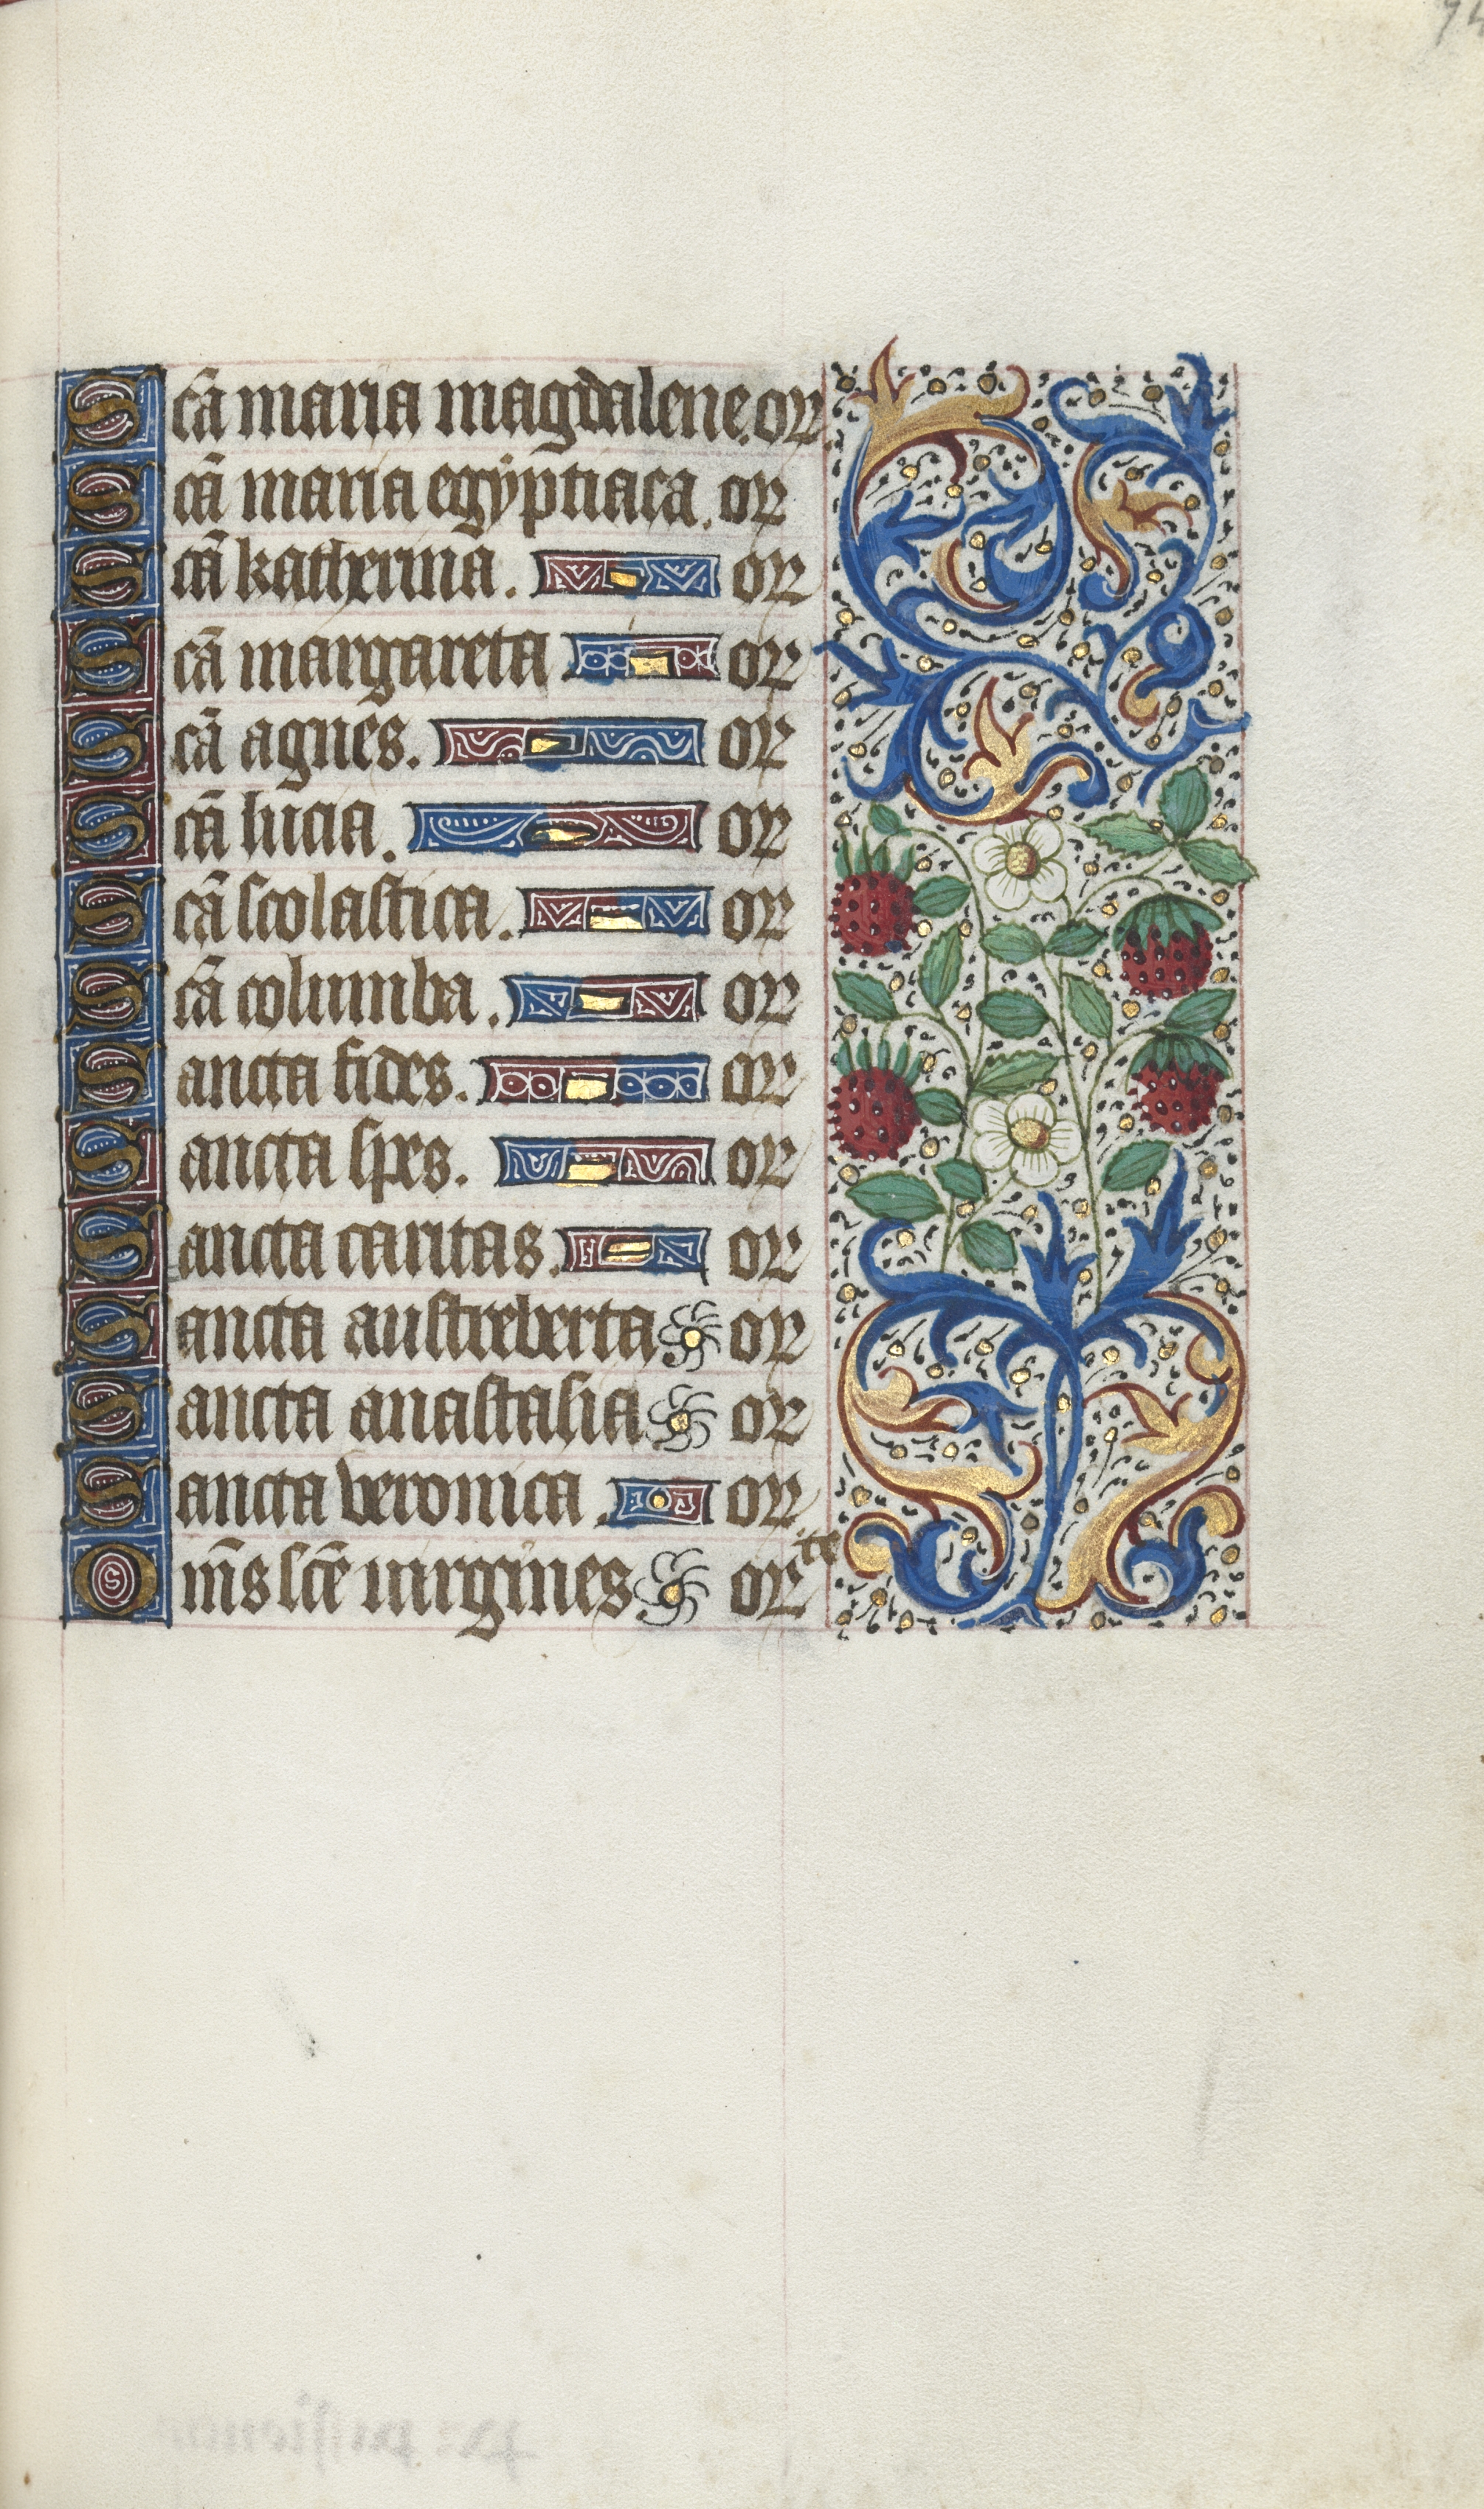 74
Scā maria magdalene. or
Scā maria egyptiaca. or
Scā katherina. or
Scā margareta or
Scā agnes. or
Scā lucia. or
Scā scolastica. or
Scā columba. or
Sancta fides. or
Sancta spes. or
Sancta caritas. or
Sancta austreberta or
Sancta anastasia or
Sancta veronica. or
Om̄s scē uirgines or te